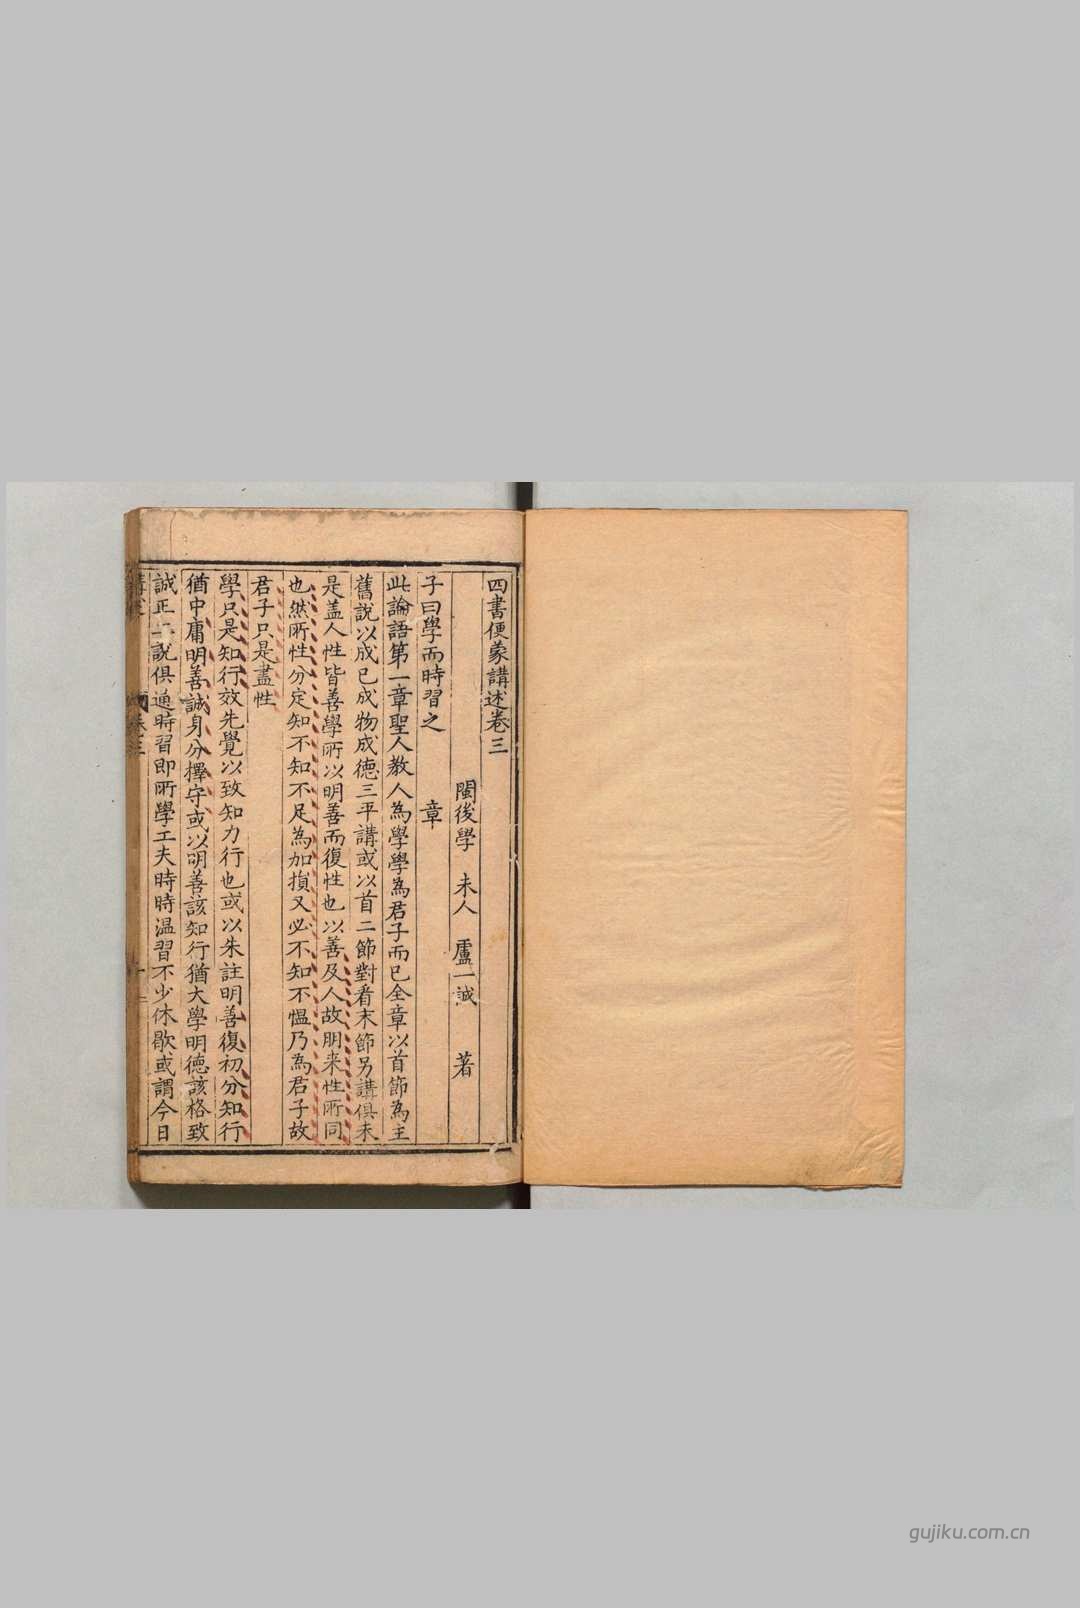 四書便蒙講述卷三
閩後學 未人 盧一誠 著
子曰學而時習之 章
此論語第一章聖人教人為學學為君子而已全章以首節為主
舊說以成已成物成德三平講或以首二節對看末節另講俱未
是盖人性皆善學所以明善而復性也以善及人故朋来性所同
也然所性分定知不知不足為加損又必不知不慍乃為君子故
君子只是盡性
學只是知行效先覺以致知力行也或以朱註明善復初分知行
猶中庸明善誠身分擇守或以明善該知行猶大學明德該格致
誠正二說俱通時習即所學工夫時時温習不少休歇或謂今日
卷三
gujiku.com.cn